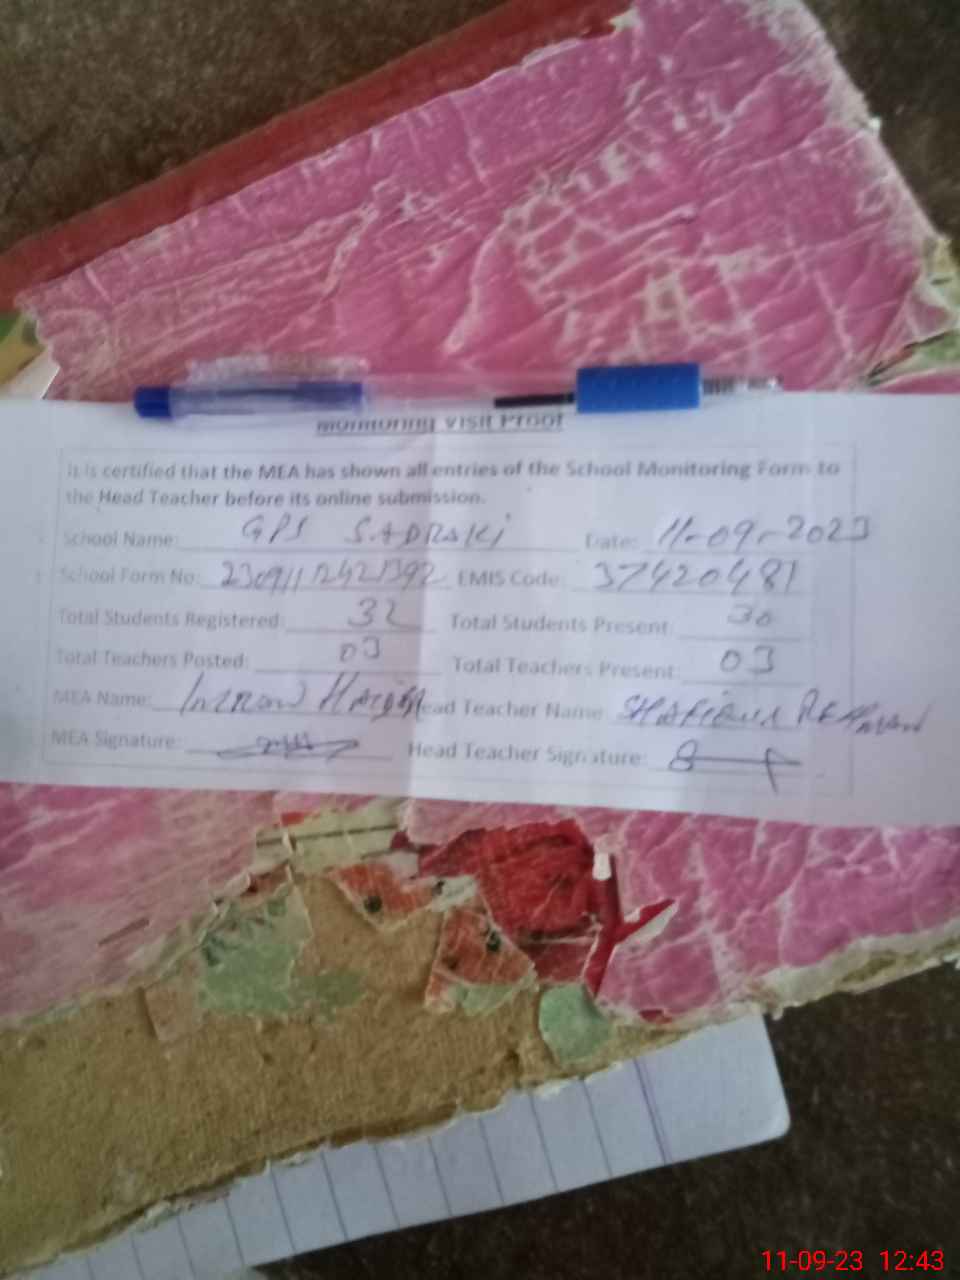 Monitoring Visit Proof
It is certified that the MEA has shown all entries of the School Monitoring Form to
the Head Teacher before its online submission.
School Name: GPS SADRAKI Date: 11-09-2023
School Form No: EMIS Code: 37420481
Total Students Registered: 32 Total Students Present: 30
Total Teachers Posted: 03 Total Teachers Present: 03
MEA Name: Head Teacher Name
MEA Signature: Head Teacher Signature:
11-09-23 12:43